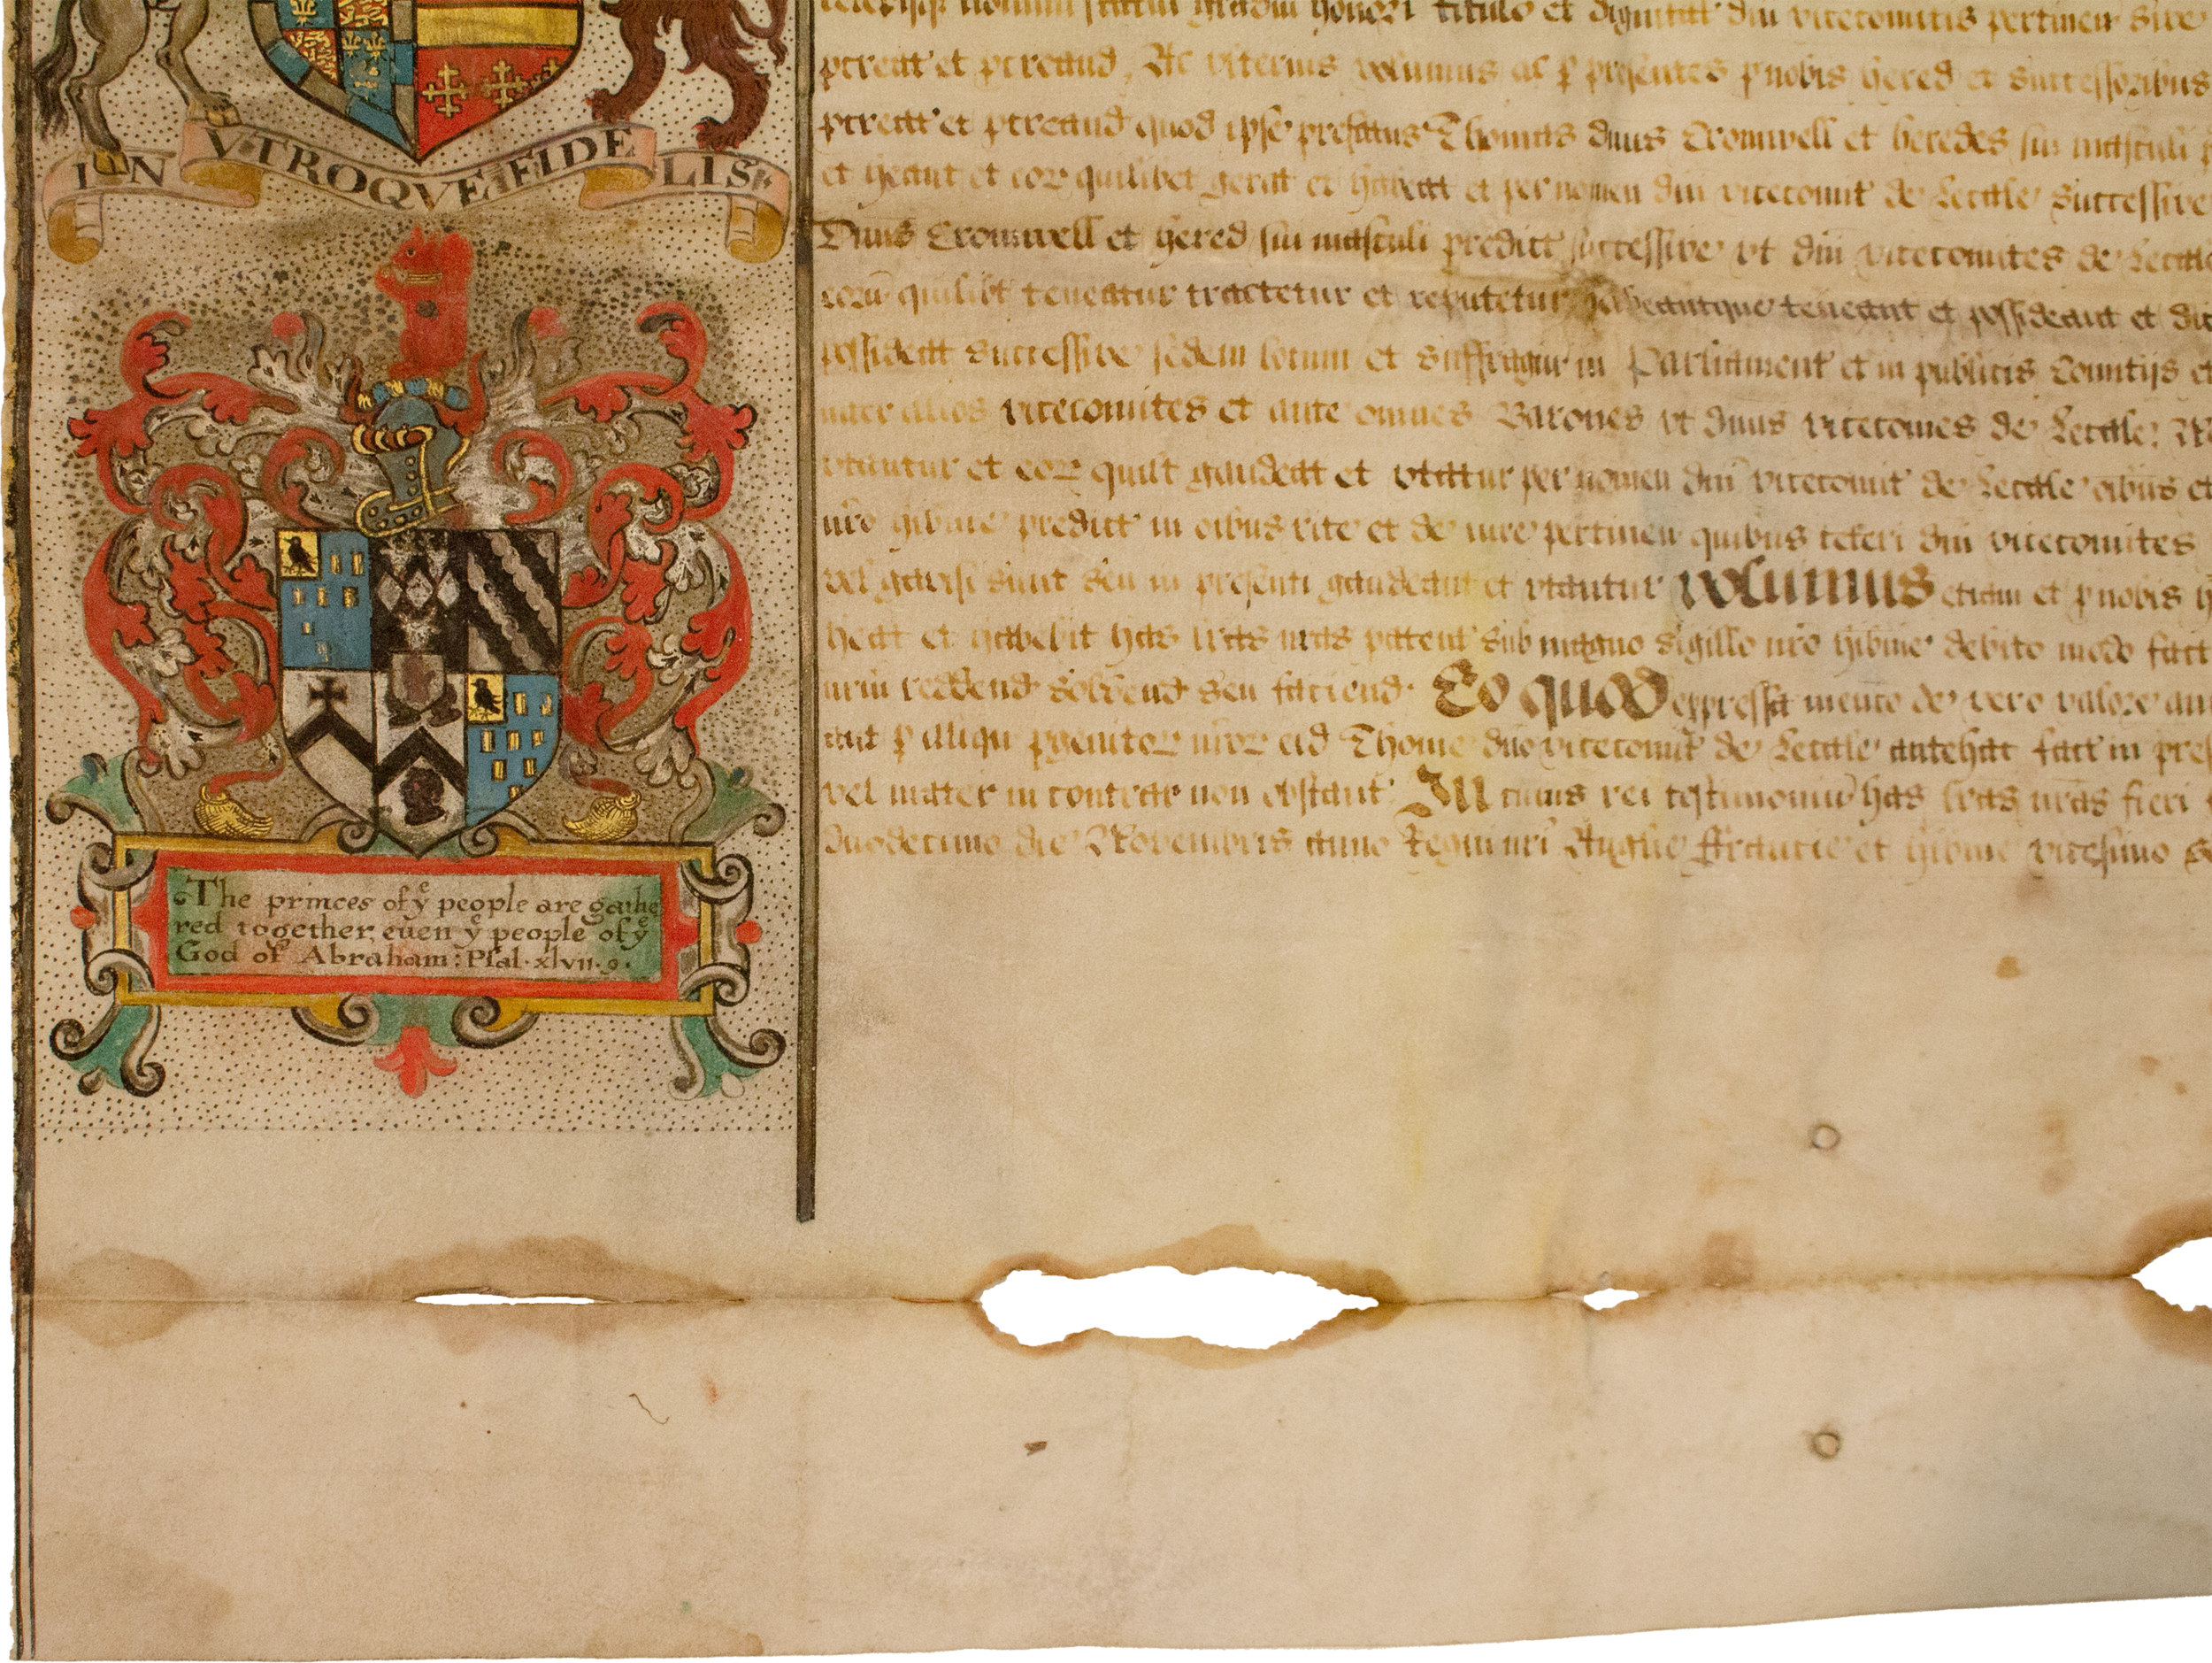 IN VTROQVE FIDELIS
The princes of yͤ people are gathe
red together, euen yͤ people of yͤ
God of Abraham: Psal. xlvii. 9.
nomen statum gradum honori titulo et dignitat dni vicecomitis pertinen sive
et Ac vlterius volumus ac p presentes p nobis hered et successoribus
et quod ipse prefatus Thomas dnus Cromwell et heredes sui masculi
et heant et eor quilibet gerat et habeat et per nomen dni vicecomit de Lecale successive
Dnus Cromwell et hered sui masculi predict successive vt dni vicecomites de Lecale
eoru quilibt teneatur tractetur et reputetur habeantque teneant et possideant et
possideat successive sedem locum et suffragiu in Parliament et in publicis Comitijs et
inter alios vicecomites et ante omnes Barones vt dnus vicecomes de Lecale:
vtantur et eor quilt gaudeat et vtatur per nomen dni vicecomit de Lecale oibus et
nro hibnie predict in oibus rite et de iure pertinen quibus ceteri dni vicecomites
vel gavisi sunt seu in presenti gaudeant et vtantur Volumus etiam et p nobis
heat et habebit has lras nras patent sub magno sigillo nro hibnie debito modo fact
reddend solvend seu faciend. Eo quod expressa mentio de vero valore
aut p aliqu pgenitor nror eid Thome dno vicecomit de Lecale antehac fact in
vel mater in contrar non obstant. In cuius rei testimoniu has lras nras fieri
duodecimo die Novembris anno Regni nri Anglie ffrancie et hibnie vicesimo